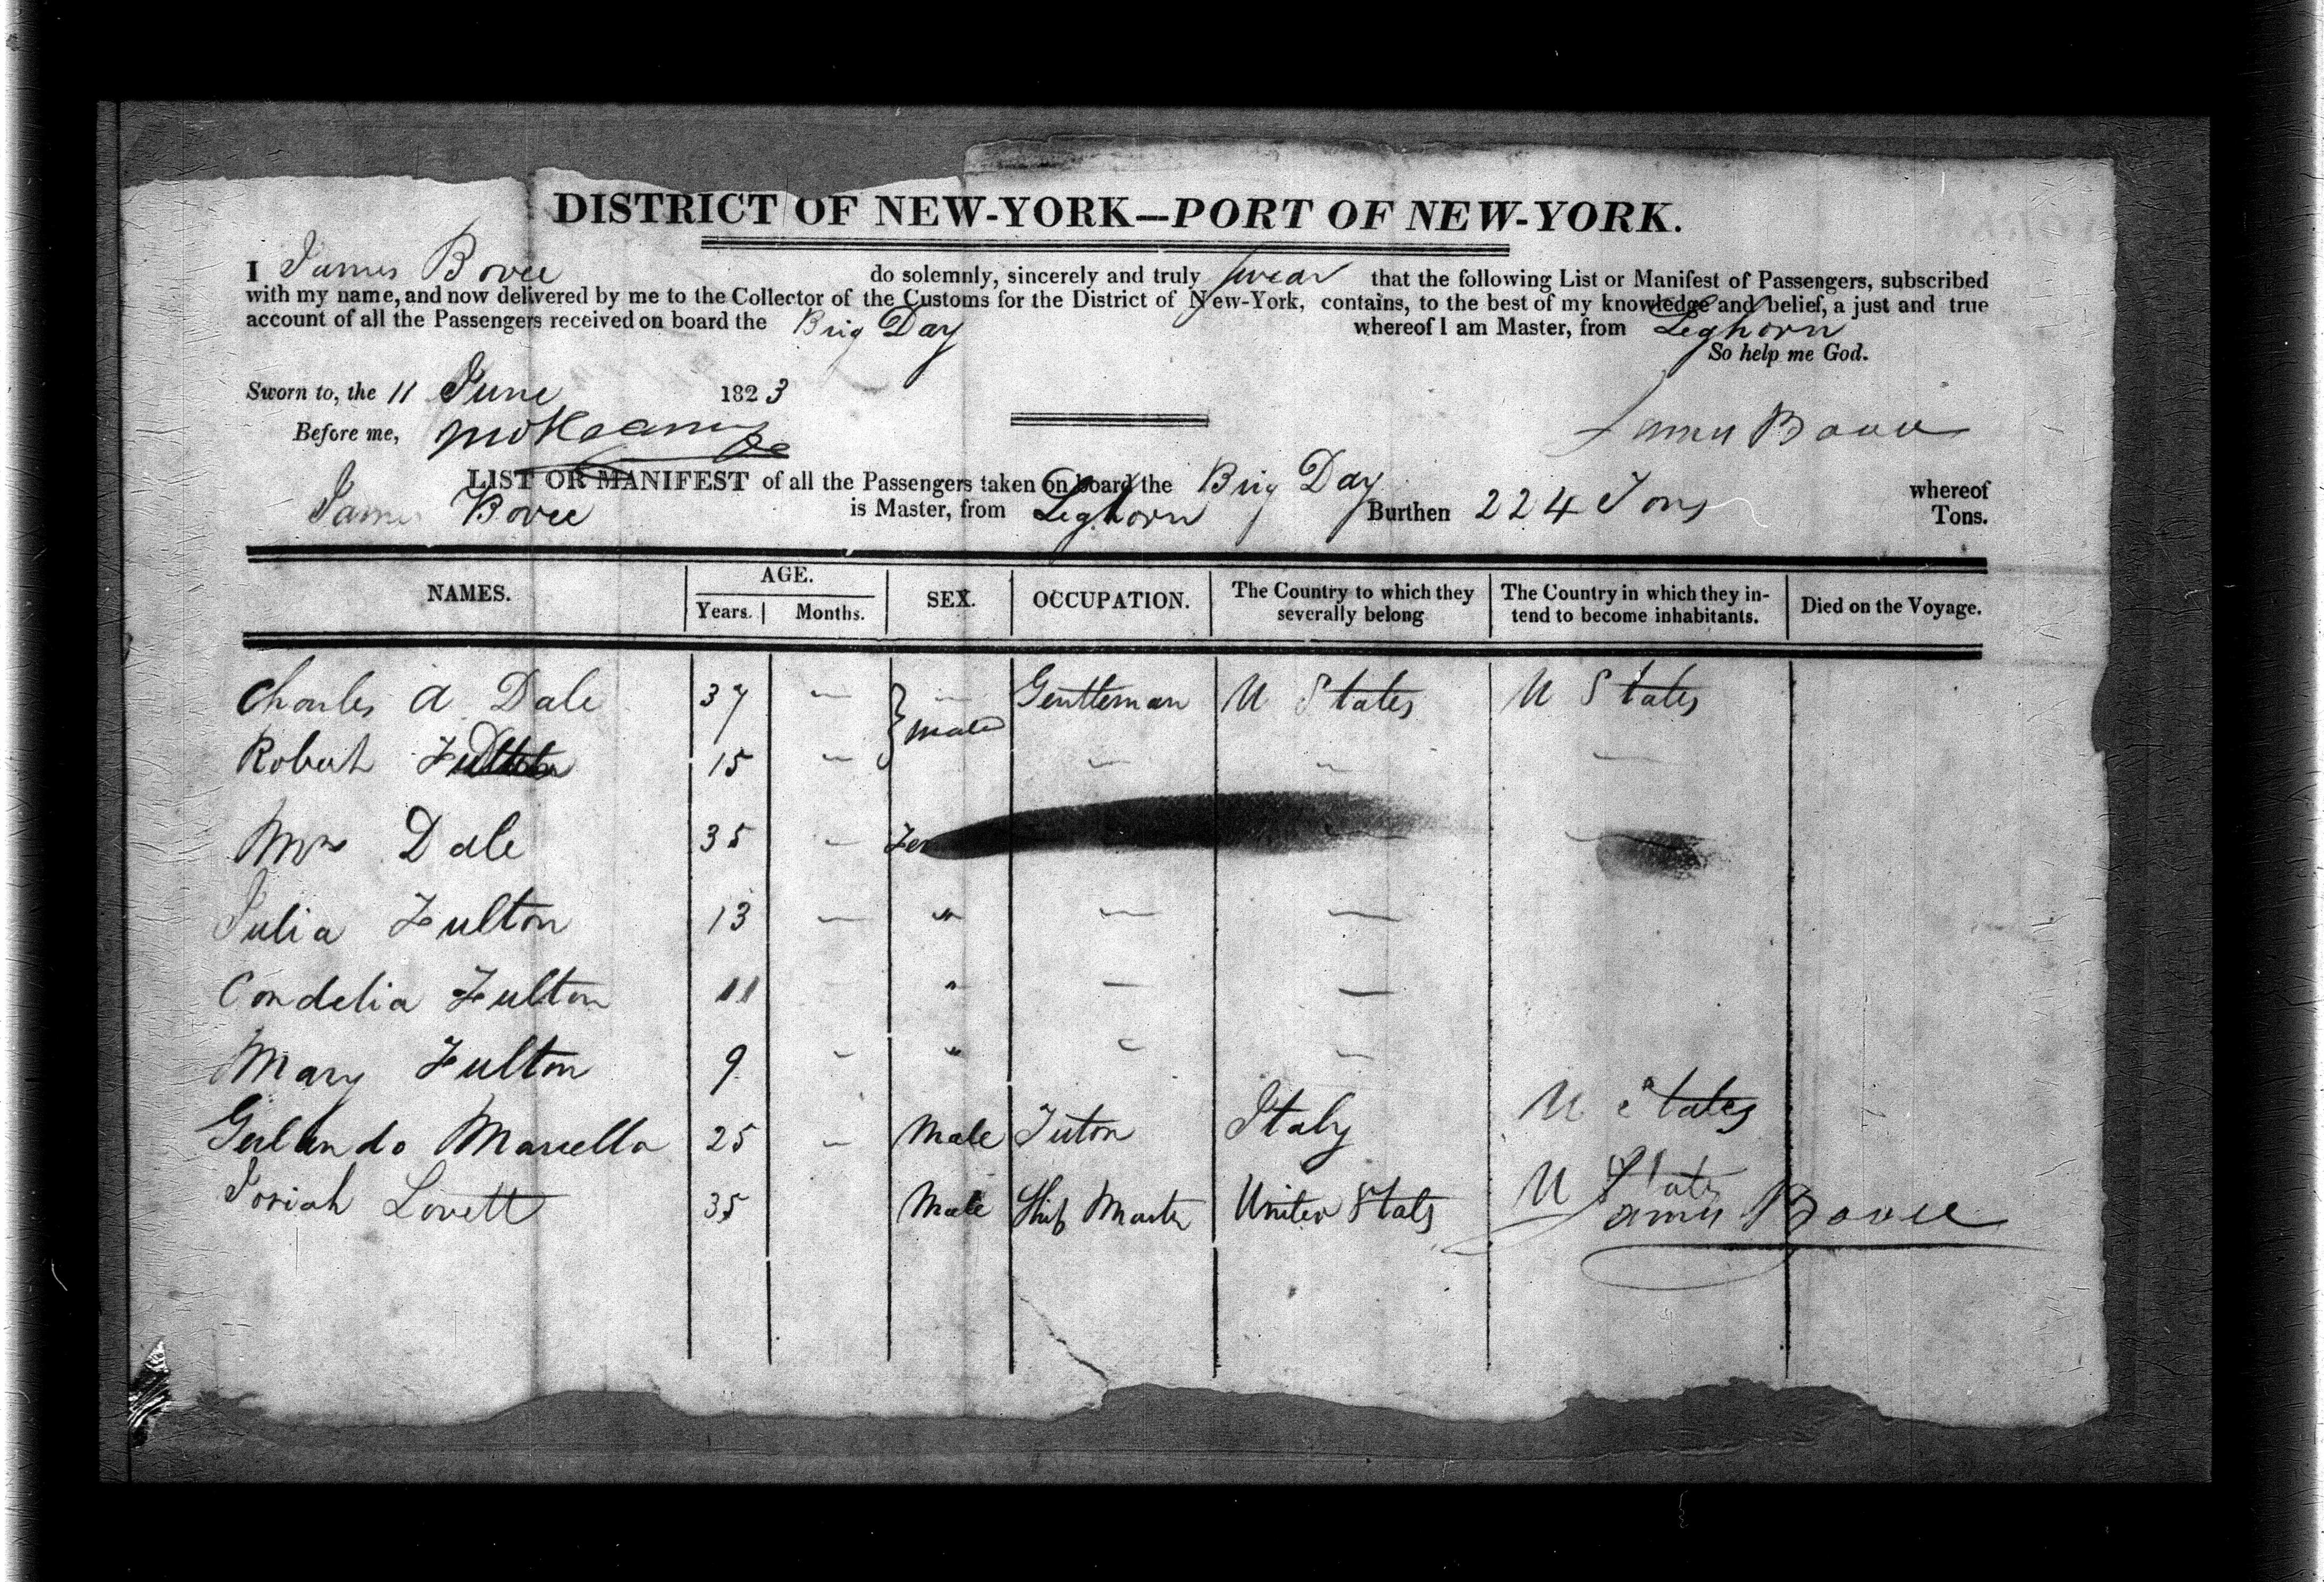 DISTRICT OF NEW-YORK—PORT OF NEW-YORK.
I James Bovee do solemnly, sincerely and truly swear that the following List or Manifest of Passengers, subscribed
with my name, and now delivered by me to the Collector of the Customs for the District of New-York, contains, to the best of my knowledge and belief, a just and true
account of all the Passengers received on board the Brig Day whereof I am Master, from Leghorn
So help me God.
Sworn to, the 11 June 1823
Before me, James Bovee
LIST OR MANIFEST of all the Passengers taken on board the Brig Day whereof
James Bovee is Master, from Leghorn Burthen 224 Tons Tons.
NAMES. AGE. Years. Months. SEX. OCCUPATION. The Country to which they severally belong The Country in which they intend to become inhabitants. Died on the Voyage.
Charles A Dale 37 — Gentleman U States U States
male
Robert 15 — — — —
Mrs Dale 35 — — —
Julia Fulton 13 — " — —
Cordelia Fulton 11 " — —
Mary Fulton 9 — " — —
25 — Male Tutor Italy U States
Josiah Lovett 35 Male Ship Master United States U States
James Bovee